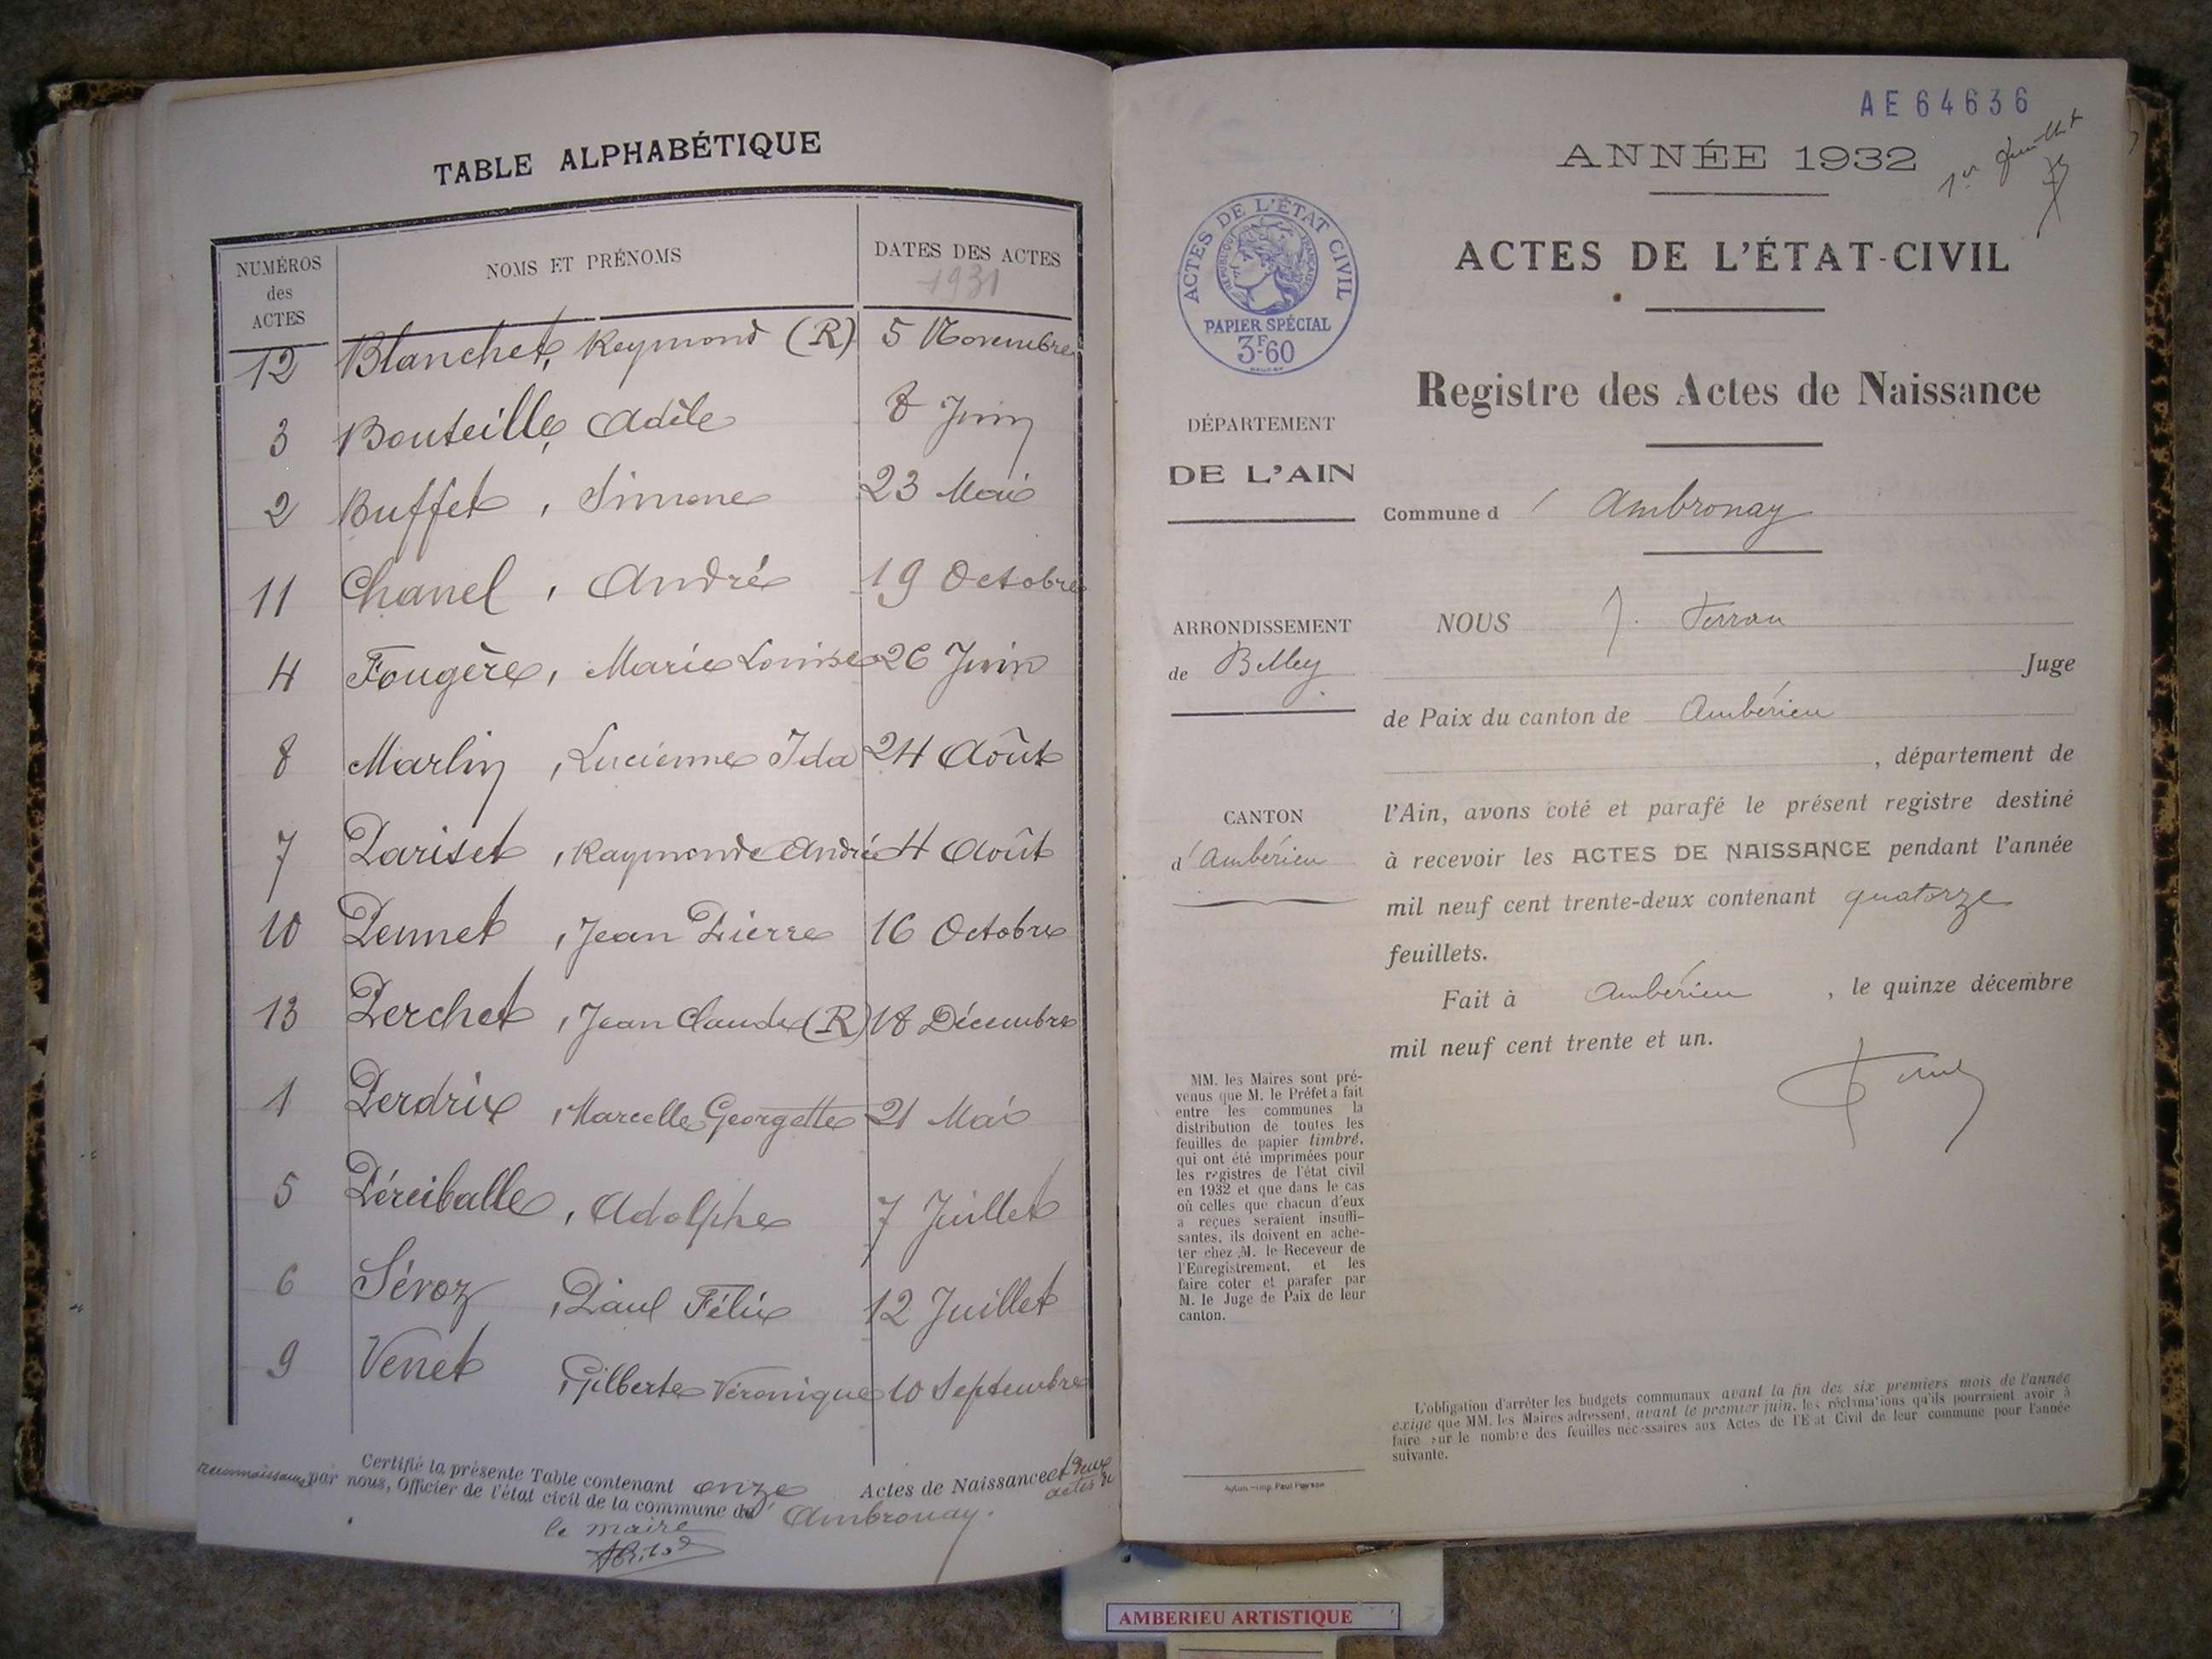 TABLE ALPHABÉTIQUE
NUMÉROS des ACTES NOMS ET PRÉNOMS DATES DES ACTES
1931
12 Blanchet, Raymond (R) 5 Novembre
3 Bouteille, Adèle 8 Juin
2 Buffet, Simone 23 Mai
11 Chanel, André 19 Octobre
4 Fougère, Marie Louise 26 Juin
8 Marlin, Lucienne Ida 24 Août
7 Pariset, Raymonde Andrée 4 Août
10 Pennet, Jean Pierre 16 Octobre
13 Perchet, Jean Claude (R) 18 Décembre
1 Perdrix, Marcelle Georgette 21 Mai
5 Péreiballe, Adolphe 7 Juillet
6 Sévoz, Paul Félix 12 Juillet
9 Venet, Gilberte Véronique 10 Septembre
Certifié la présente Table contenant onze Actes de Naissance et deux actes de
reconnaissance par nous, Officier de l'état civil de la commune d' Ambronay.
le maire
AE 64636
ANNÉE 1932
1er feuillet
ACTES DE L'ÉTAT CIVIL
RÉPUBLIQUE FRANÇAISE
PAPIER SPÉCIAL
3F.60
ACTES DE L'ÉTAT-CIVIL
Registre des Actes de Naissance
DÉPARTEMENT
DE L'AIN
Commune d' Ambronay
ARRONDISSEMENT
de Belley
CANTON
d'Ambérieu
NOUS J. Ferran
Juge
de Paix du canton de Ambérieu
, département de
l'Ain, avons coté et parafé le présent registre destiné
à recevoir les ACTES DE NAISSANCE pendant l'année
mil neuf cent trente-deux contenant quatorze
feuillets.
Fait à Ambérieu, le quinze décembre
mil neuf cent trente et un.
MM. les Maires sont pré-
venus que M. le Préfet a fait
entre les communes la
distribution de toutes les
feuilles de papier timbré,
qui ont été imprimées pour
les registres de l'état civil
en 1932 et que dans le cas
où celles que chacun d'eux
a reçues seraient insuffi-
santes, ils doivent en ache-
ter chez M. le Receveur de
l'Enregistrement, et les
faire coter et parafer par
M. le Juge de Paix de leur
canton.
L'obligation d'arrêter les budgets communaux avant la fin des six premiers mois de l'année
exige que MM. les Maires adressent, avant le premier juin, les réclamations qu'ils pourraient avoir à
faire sur le nombre des feuilles nécessaires aux Actes de l'Etat Civil de leur commune pour l'année
suivante.
AMBERIEU ARTISTIQUE